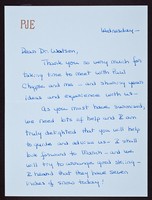 PJE
Wednesday –
Dear Dr. Watson,
Thank you so very much for
taking time to meet with Paul
and me – and sharing your
ideas and experiences with us –
As you must have surmised,
we need lots of help and I am
truly delighted that you will help
to guide and advise us. I shall
look forward to March – and we
will try to arrange good skiing –
I heard that they have seven
inches of snow today!